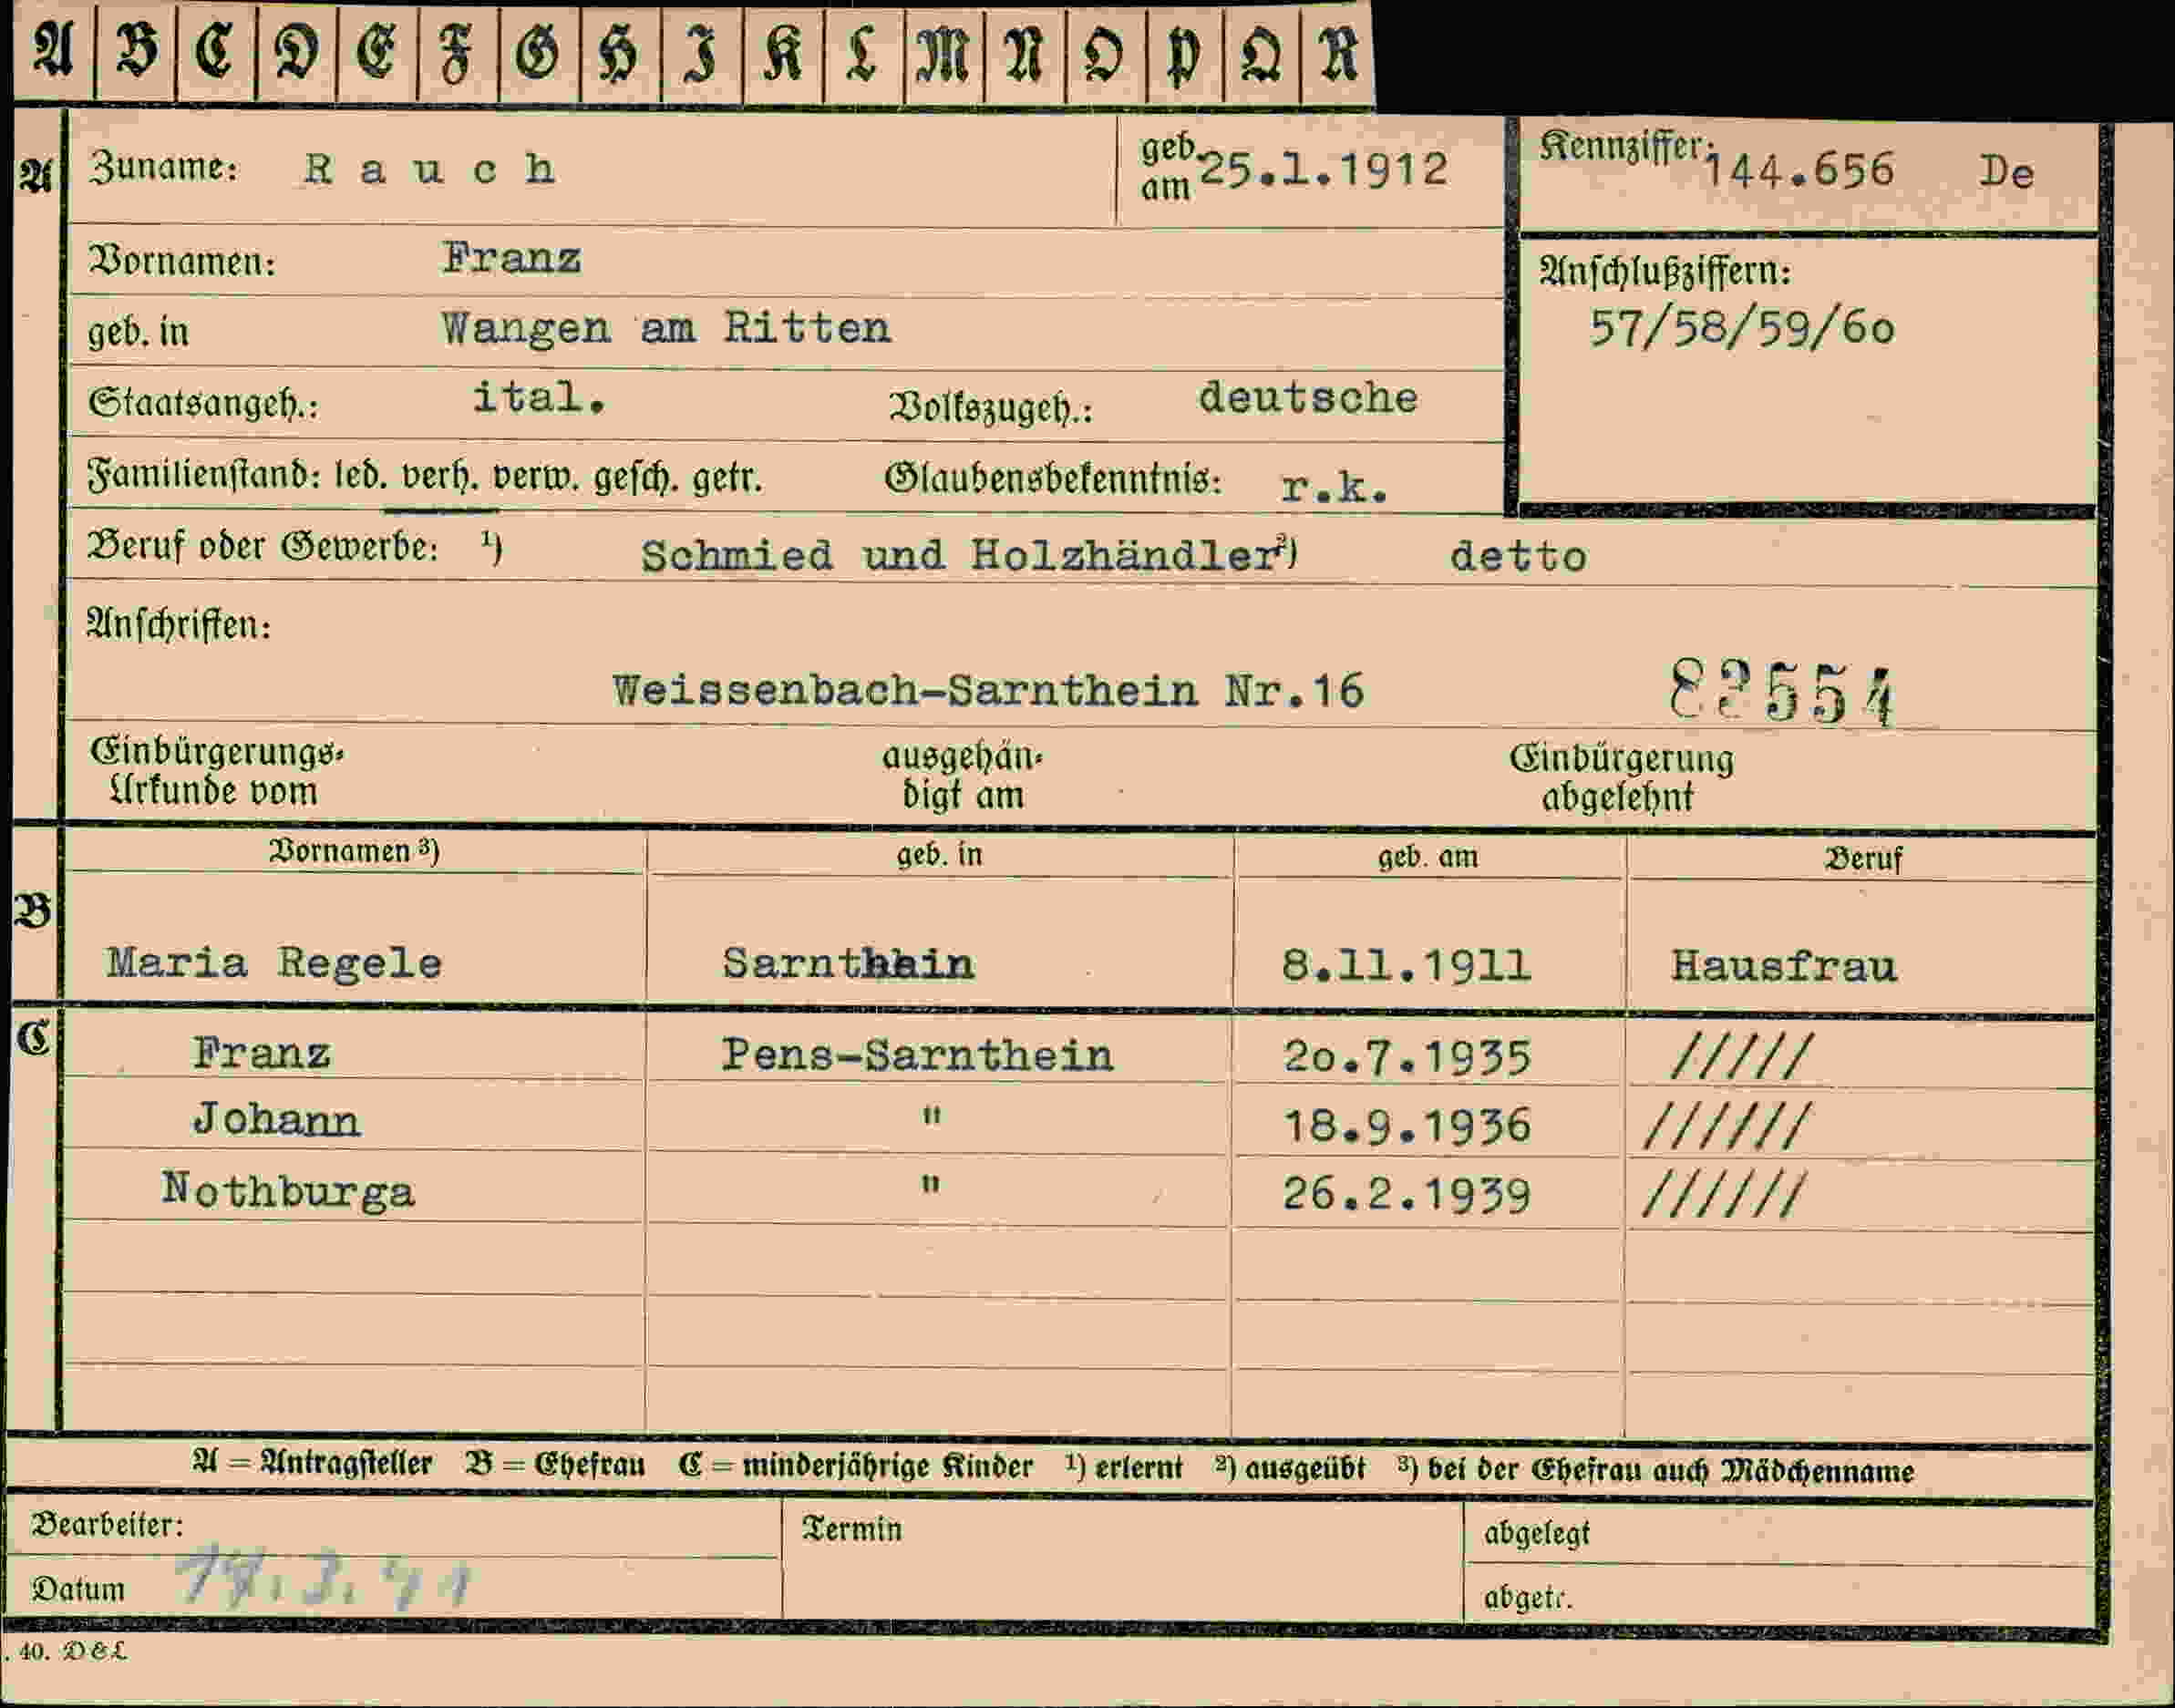 A B C D E F G H I K L M N O P Q R
A Zuname: R a u c h geb. am 25.1.1912 Kennziffer: 144.656 De
Vornamen: Franz
Anschlußziffern:
geb. in Wangen am Ritten 57/58/59/6o
Staatsangeh.: ital. Volkszugeh.: deutsche
Familienstand: led. verh. verw. gesch. getr. Glaubensbekenntnis: r.k.
Beruf oder Gewerbe: ¹) Schmied und Holzhändler ²) detto
Anschriften:
Weissenbach-Sarnthein Nr.16 82554
Einbürgerungs- ausgehän- Einbürgerung
Urkunde vom digt am abgelehnt
Vornamen ³) geb. in geb. am Beruf
B
Maria Regele Sarnthein 8.11.1911 Hausfrau
C Franz Pens-Sarnthein 2o.7.1935 /////
Johann " 18.9.1936 //////
Nothburga " 26.2.1939 //////
A = Antragsteller B = Ehefrau C = minderjährige Kinder ¹) erlernt ²) ausgeübt ³) bei der Ehefrau auch Mädchenname
Bearbeiter: Termin abgelegt
Datum abgetr.
. 40. D&L